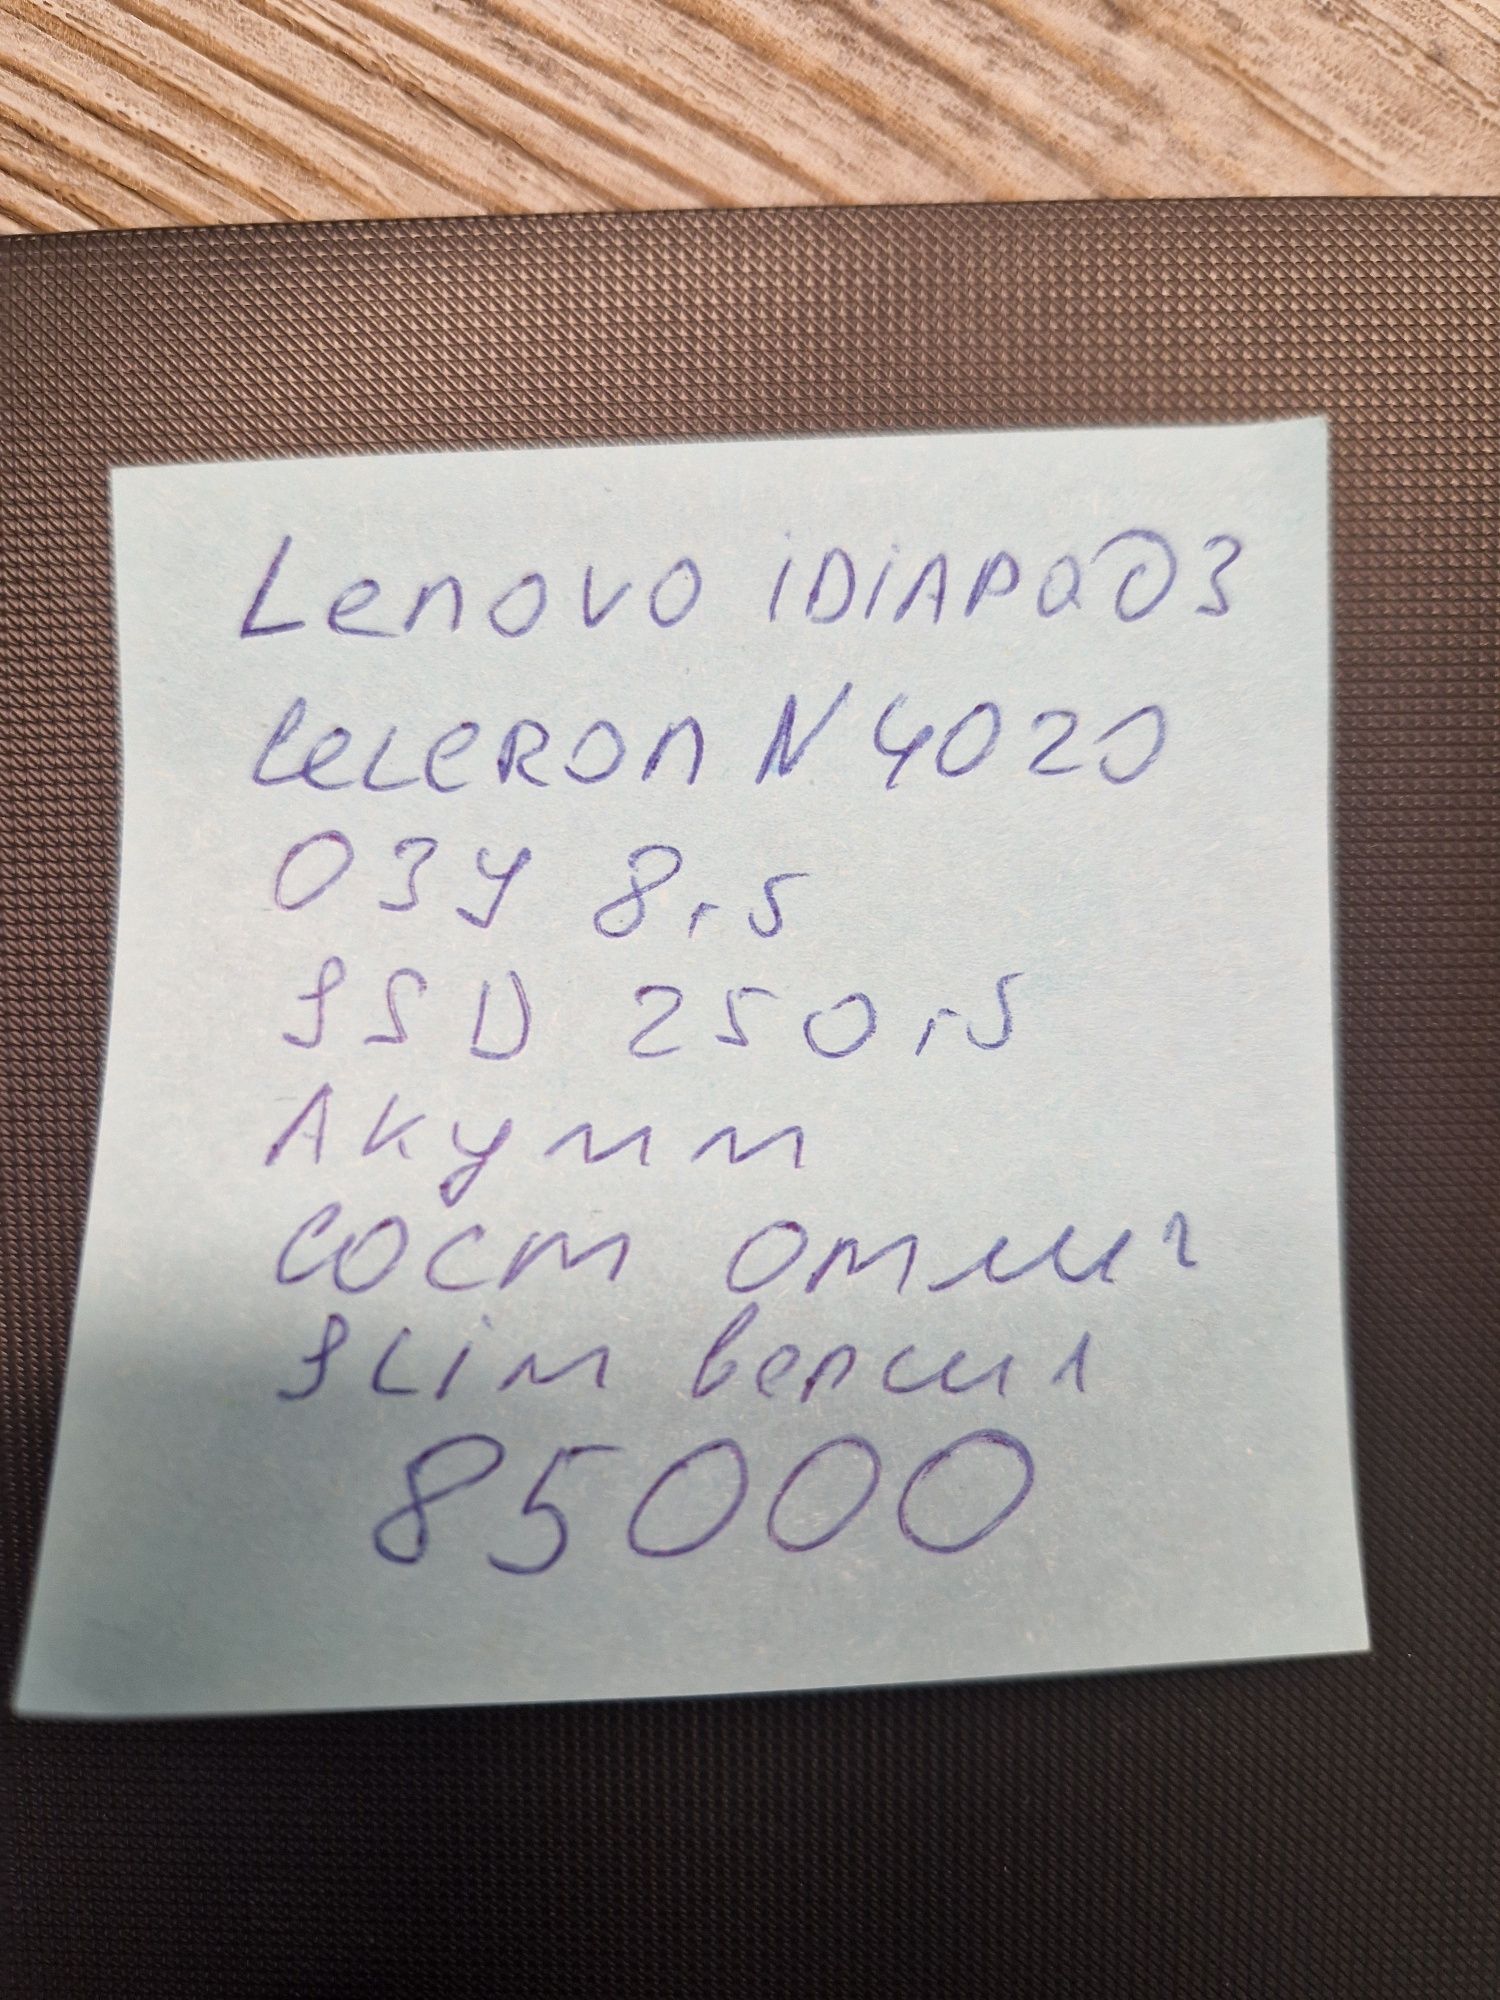 Lenovo iDiAPaD3
CeLeRon N4020
ОЗУ 8 гб
SSD 250 гб
Акумм
Сост отлич
SLim версия
85000